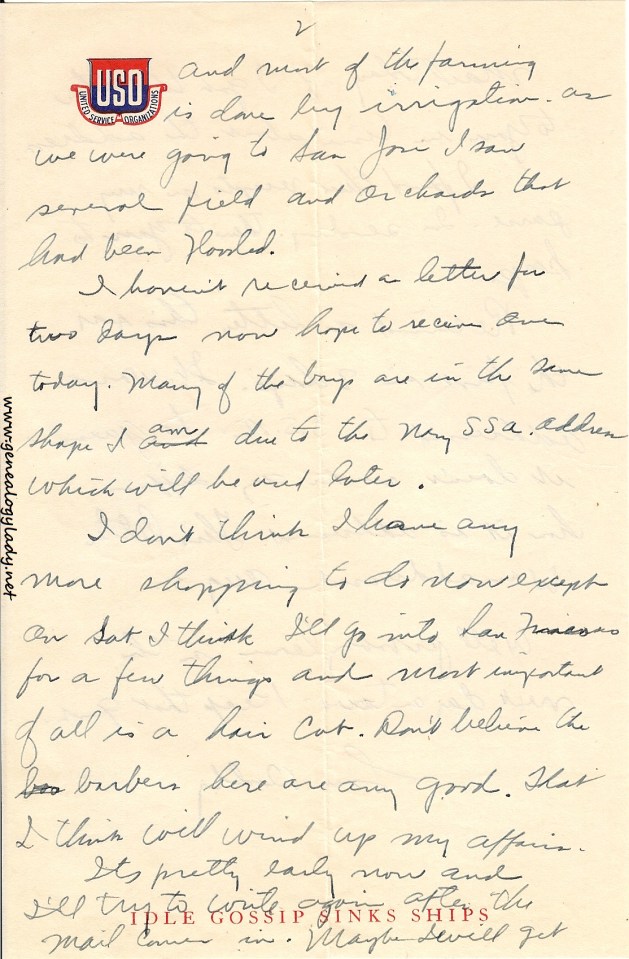 2
USO
UNITED SERVICE ORGANIZATIONS
and most of the farming
is done by irrigation. as
we were going to San Jose I saw
several field and orchards that
had been flooded.
I haven't received a letter for
two days now hope to receive one
today. Many of the boys are in the same
shape I am due to the new SSA. address
which will be used later.
I don't think I have any
more shopping to do now except
on Sat I think I'll go into San Francisco
for a few things and most important
of all is a hair cut. Don't believe the
barbers here are any good. That
I think will wind up my affairs.
Its pretty early now and
I'll try to write again after the
IDLE GOSSIP SINKS SHIPS
mail comes in. Maybe I will get
www.genealogylady.net